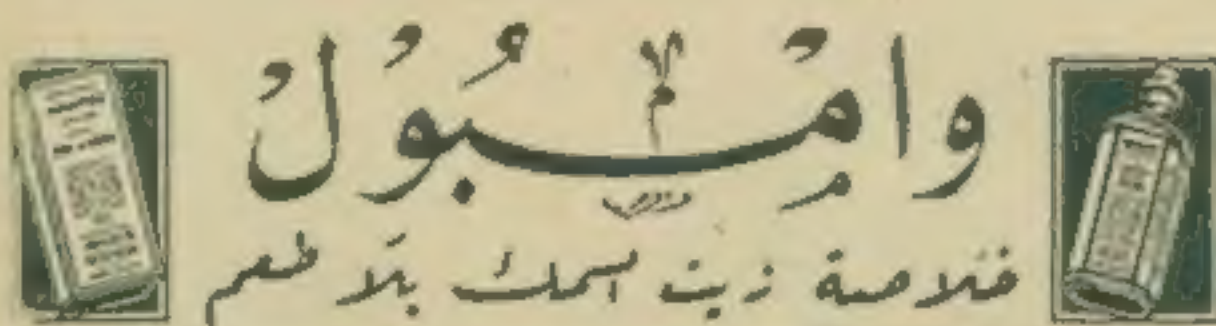 وامْبُوُلْ
خلاصة زيت السمك بلا طعم